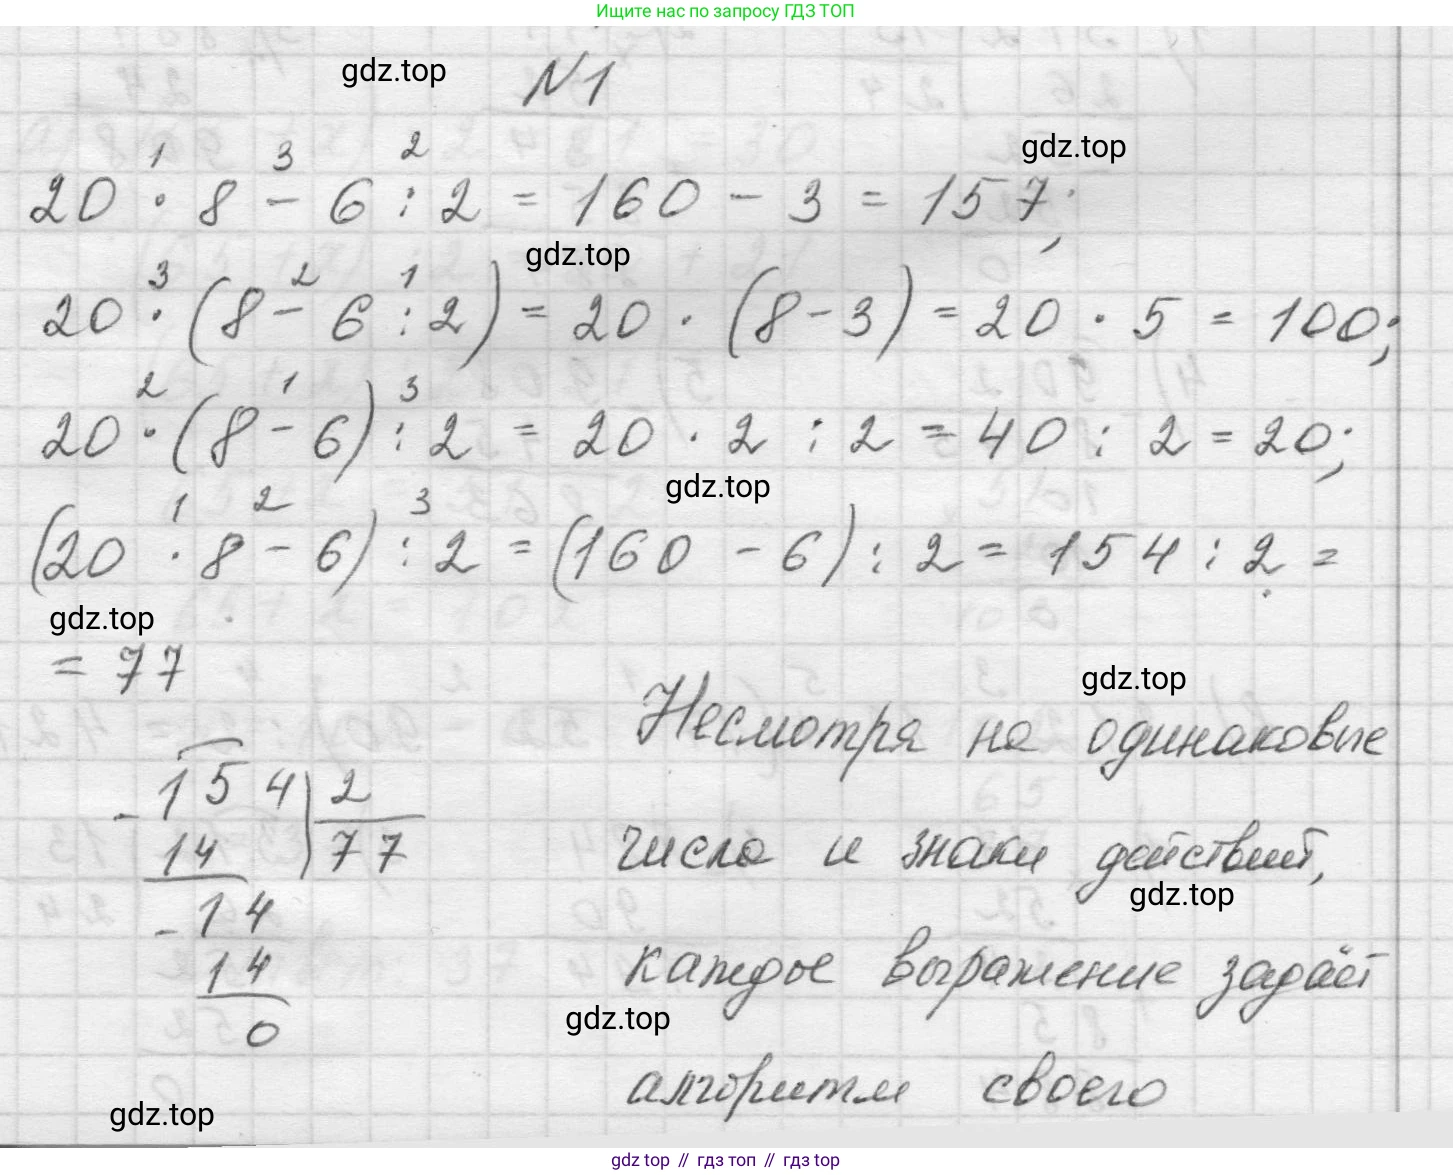 Ищите нас по запросу ГДЗ ТОП
gdz.top
N1
gdz.top
1 3 2
20 · 8 - 6 : 2 = 160 - 3 = 157;
gdz.top
3 2 1
20 · (8 - 6 : 2) = 20 · (8 - 3) = 20 · 5 = 100;
2 1 3
20 · (8 - 6) : 2 = 20 · 2 : 2 = 40 : 2 = 20;
gdz.top
1 2 3
(20 · 8 - 6) : 2 = (160 - 6) : 2 = 154 : 2 =
gdz.top
= 77
gdz.top
Несмотря на одинаковые
154 | 2
- 14 | 77
числа и знаки действий,
gdz.top
- 14
14
каждое выражение задаёт
gdz.top
0
алгоритм своего
gdz.top
gdz top // гдз топ // гдз top